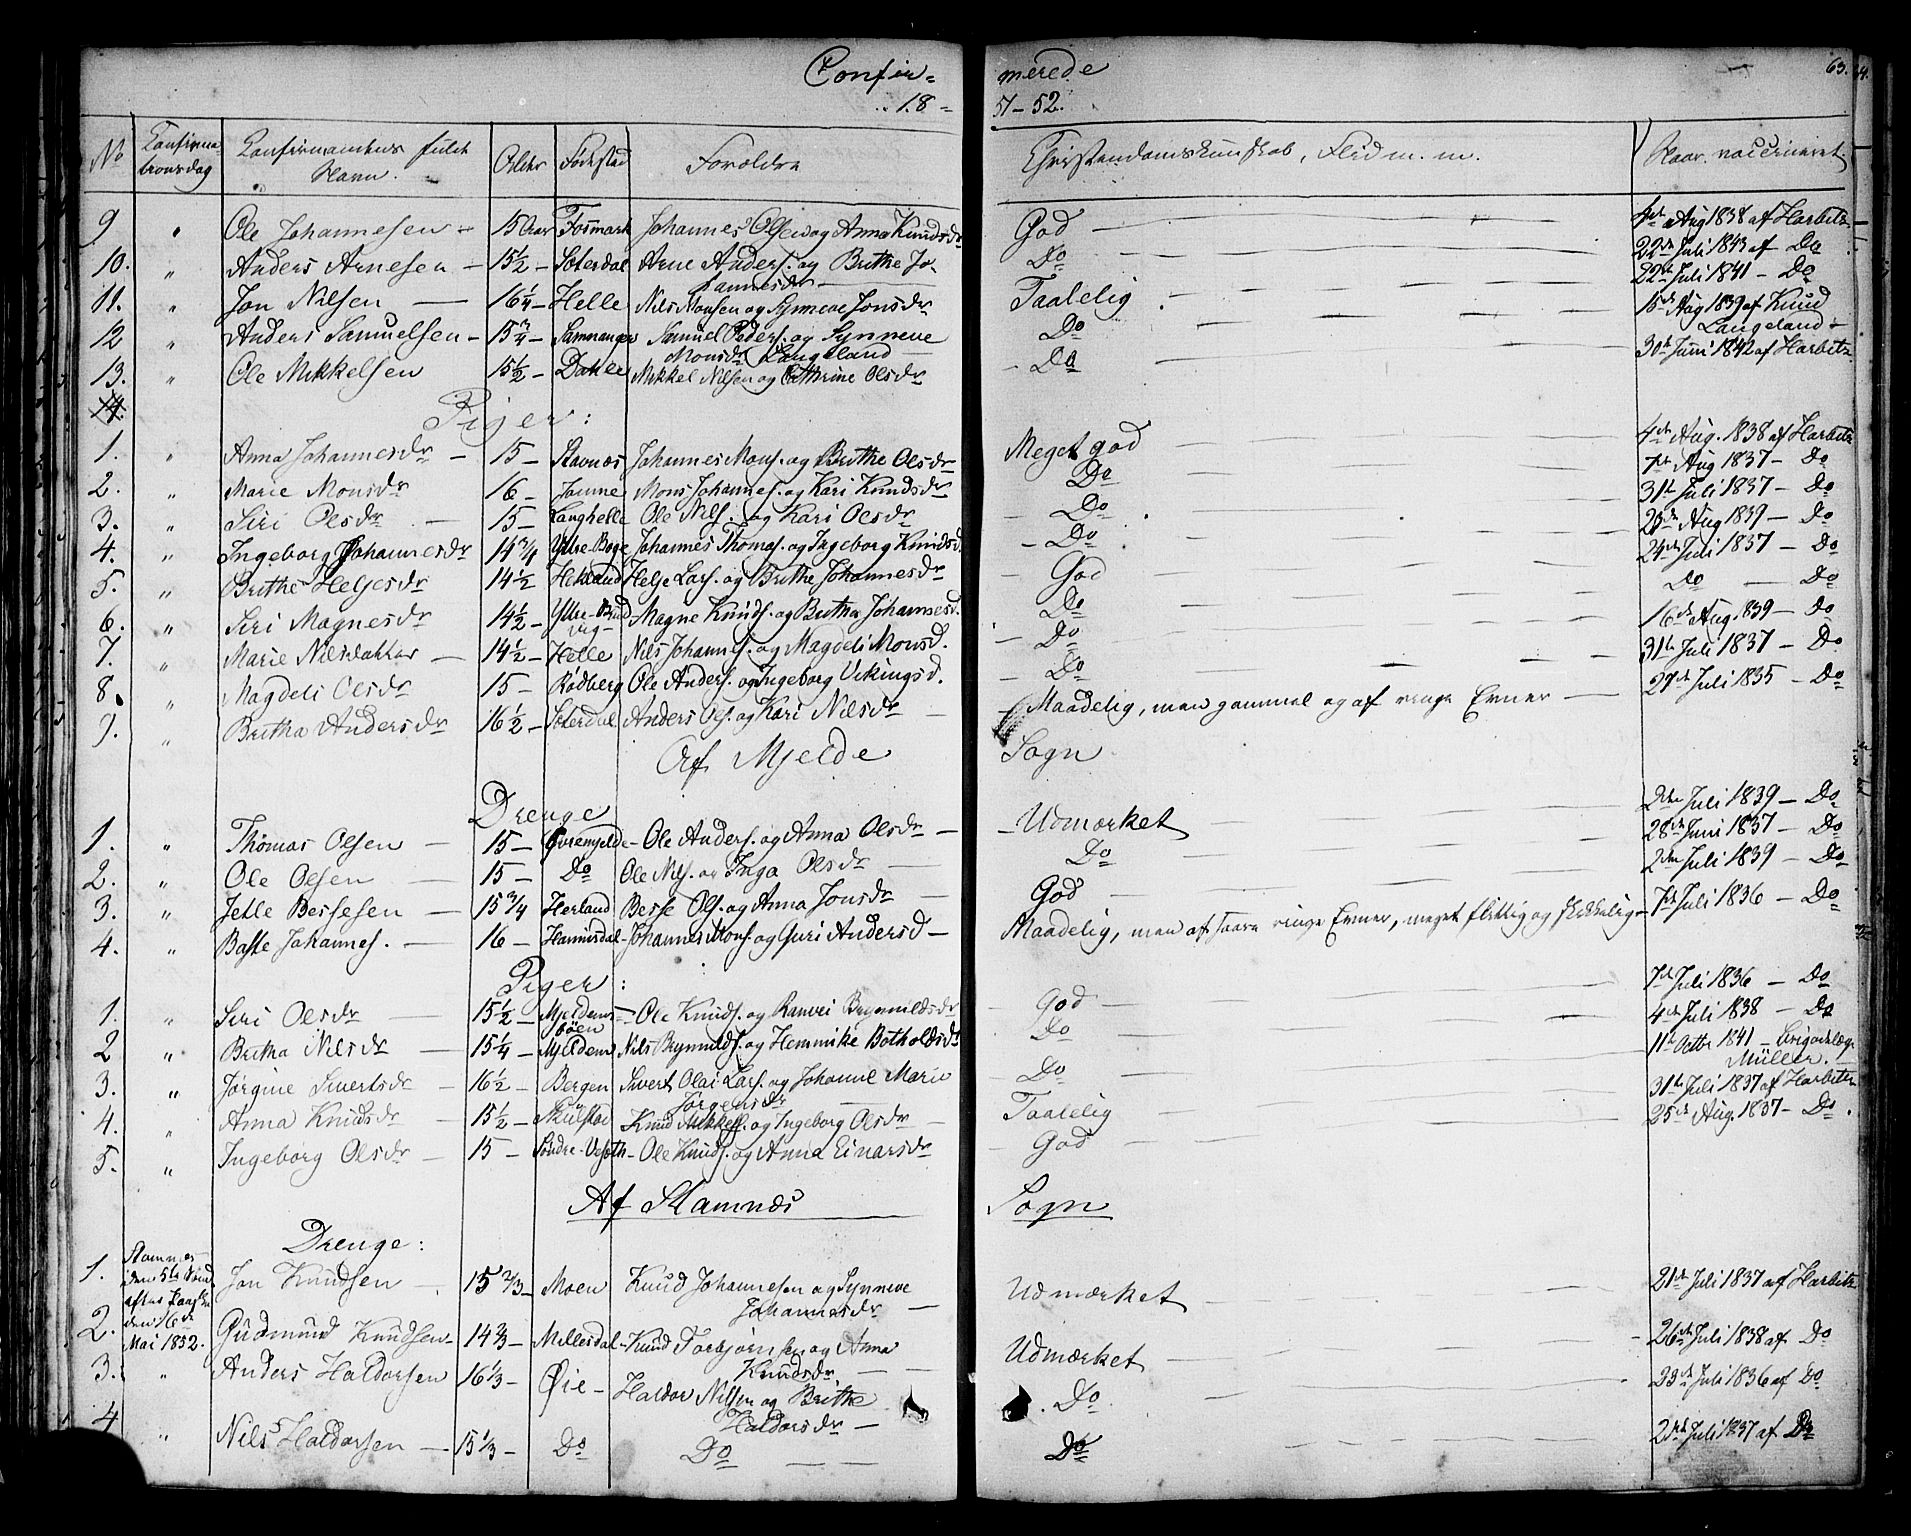 Confir= merede
18= 51-52.
63.
No Konfirma- tionsdag Konfirmantens fulde Navn. Alder Fødested Forældre Christendomskundskab, Flid m. m. Naar vaccineret.
9 " Ole Johannesen - 15 Aar Fosmark Johannes Olsen og Anna Knudsdr God 4de Aug 1838 af Harbitz
10. " Anders Arnesen - 15½ - Soterdal Arne Anders. og Brithe Jo- Do 22de Juli 1843 af Do
hannesdr
11. " Jon Nilsen - 16¼ - Helle Nils Monsen og Synneve Jonsdr Taalelig 22de Juli 1841 - Do
12 " Anders Samuelsen - 15¾ - Samnanger Samuel Peders. og Synneve Do Aug 1839 af Knud
Monsdr Langeland Langeland
13. " Ole Mikkelsen 15½ - Dahle Mikkel Nilsen og Cathrine Olsdr - Do 30te Juni 1842 af Harbitz
14.
Piger:
1. " Anna Johannesdr - 15 - Stavnæs Johannes Mons. og Brithe Olsdr Meget god 4de Aug. 1838 af Harbitz
2. " Marie Monsdr 16 - Jamne Mons Johannes. og Kari Knudsdr Do 7de Aug 1837 - Do
3. " Siri Olsdr - 15 - Langhelle Ole Nils. og Kari Olsdr - Do 31te Juli 1837 - Do
4. " Ingeborg Johannesdr 14¾ Yttre-Boge Johannes Thomas. og Ingeborg Knudsd. - Do 25de Aug 1839 - Do
5. " Brithe Heljesdr 14½ Hekland Helje Lars. og Brithe Johannesdr - God 24de Juli 1837 - Do
6. " Siri Magnesdr 14½ - Yttre-Brud Magne Knuds. og Britha Johannesd. Do Do - Do
vig -
7. " Marie Nilsdatter - 14½ - Helle Nils Johannes. og Magdeli Monsd. - Do 16de Aug. 1839 - Do
8. " Magdeli Olsdr 15 - Rødberg Ole Anders. og Ingeborg Vikingsd. - Do 31te Juli 1837 - Do
9. " Britha Andersdr 16½ - Soterdal Anders Ols. og Kari Nilsdr - Maadelig, men gammel og af ringe Evner 27de Juli 1835 - Do
Af Mjelde Sogn
Drenge
1. " Thomas Olsen - 15 - Øvremjelde - Ole Anders. og Anna Olsdr - - Udmærket 2den Juli 1839 - Do
2. " Ole Olsen - 15 - Do Ole Nils. og Inga Olsdr Do 28de Juni 1837 - Do
3. " Jelle Bessesen - 15¾ Herland Besse Ols. og Anna Jonsdr God 2den Juli 1839 - Do
4. " Johannes. - 16 - Hannisdal - Johannes Mons. og Guri Andersd - Maadelig, men af saare ringe Evner, meget flittig og skikkelig - 7de Juli 1836 - Do
Piger:
1. " Siri Olsdr 15½ - Mjeldem- - Ole Knuds. og Ranvei Brynnildsdr God 7de Juli 1836 - Do
bøen
2 " Britha Nilsdr 15¼ - Mjeldem Nils Brynnilds. og Hemmike Botholdsdr Do 4de Juli 1838 - Do
3. " Jørgine Sivertsdr - 16½ - Bergen Sivert Olai Lars. og Johanne Marie - Do 11te Octbr 1841 - Brigadelæge
Jørgensdr Müller.
4. " Anna Knudsdr - 15½ - Skulstad Knud Mikkels. og Ingeborg Olsdr Taalelig 31te Juli 1837 af Harbitz
5. " Ingeborg Olsdr - 15 - Søndre-Veseth - Ole Knuds. og Anna Einarsdr - God 25de Aug. 1837 - Do.
Af Stamnæs Sogn
Drenge:
Stamnes
1. den 5te Sønd. Jon Knudsen - 15⅔ - Moen Knud Johannesen og Synneve Udmærket 21de Juli 1837 af Harbitz
efter Paaske Johannesdr -
2. den 16de Gudmund Knudsen - 14⅔ - Millesdal - Knud Torbjørnsen og Anna Udmærket - 26de Juli 1838 af Do
Mai 1852. Knudsdr
3. " Anders Haldorsen 16⅓ - Øie - Haldor Nilsen og Brithe . Do Juli 1836 af Do
Haldorsdr -
4 " Nils Haldorsen - 15⅓ - Do Do Do Juli 1837 af Do